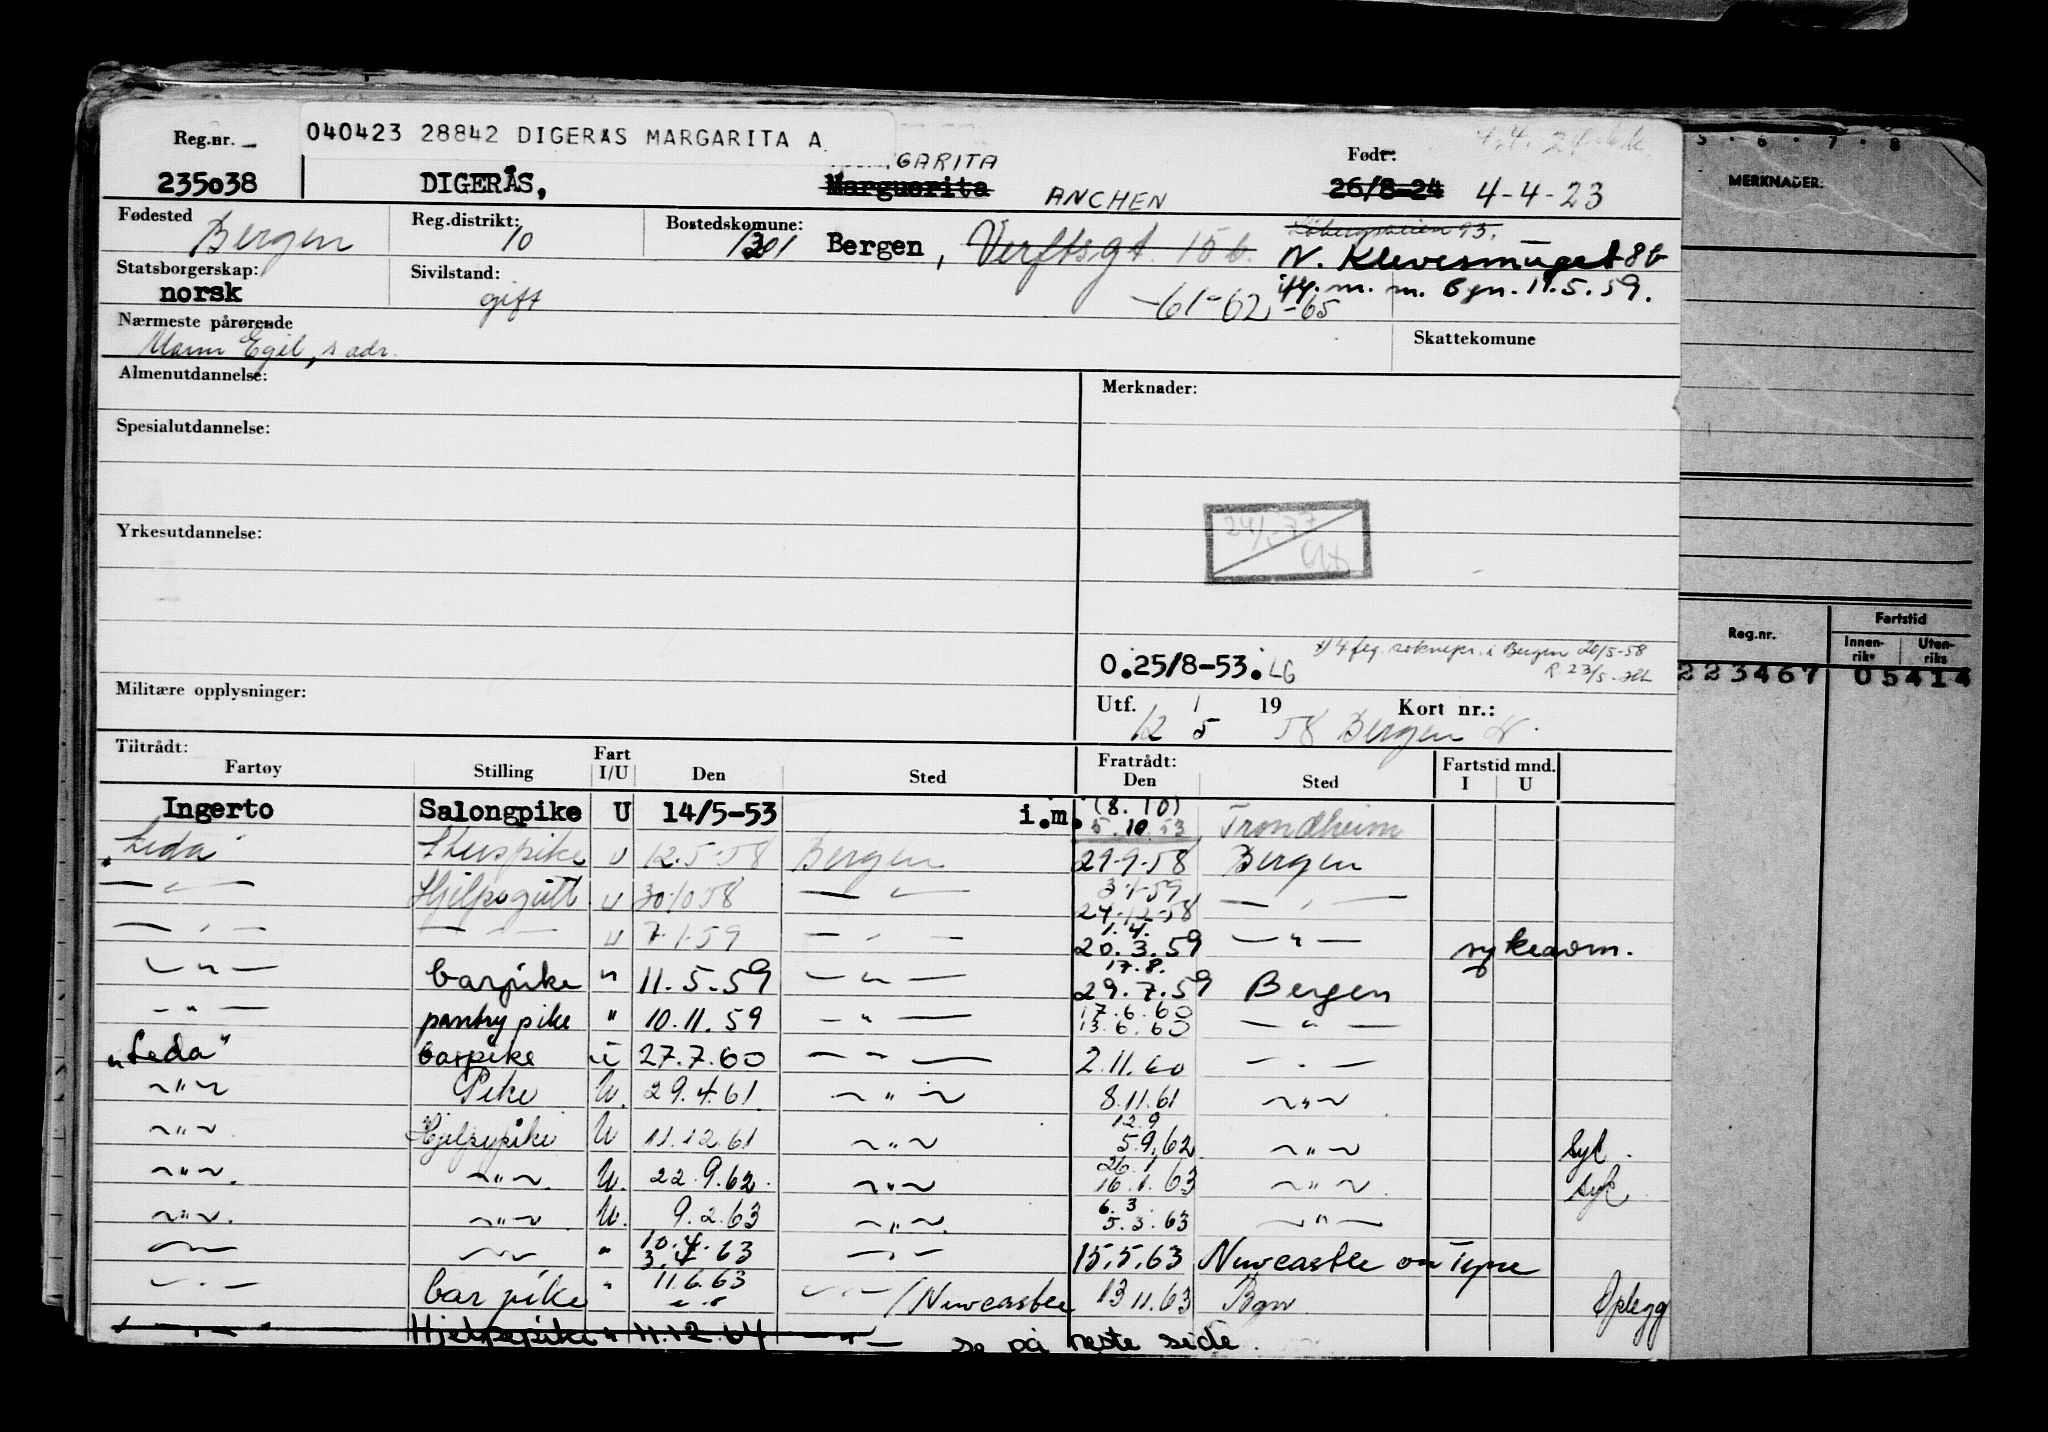 Reg.nr.
040423 28842 DIGERAS MARGARITA A
Født:
235038
DIGERÅS,
GARITA
Marguerita
ANCHEN
26/8-24 4-4-23
Fødested
Bergen
Reg.distrikt:
10
Bostedskomune:
1301
Bergen, Verftsgt. 15 b.
N. Klevesmuget 8b
Statsborgerskap:
norsk
Sivilstand:
gift
m. m. Bgn. 11.5.59.
-61-62-65
Nærmeste pårørende
Mann Egil, s adr.
Skattekomune
Almenutdannelse:
Merknader:
Spesialutdannelse:
Yrkesutdannelse:
O.25/8-53. LG
i Bergen 20/5-58
R. 23/5
Militære opplysninger:
Utf. / 19 Kort nr.:
12 5 58 Bergen
Tiltrådt:
Fartøy
Stilling
Fart
I/U
Den
Sted
Fratrådt:
Den
Sted
Fartstid mnd.
I U
Ingerto Salongpike U 14/5-53 i.m. (8.10) 5.10.53 Trondheim
"Leda" U 12.5.58 Bergen 29.9.58 Bergen
— " — Hjelpegutt U 30/10 58 — " — 3.1.59 24.12.58 — " —
— " — — " — U 7.1.59 — " — 1.4. 20.3.59 — " — sykeavm.
— " — barpike " 11.5.59 — " — 17.8. 29.7.59 Bergen
— " — pantry pike " 10.11.59 — " — 17.6.60 13.6.60 — " —
"Leda" barpike u 27.7.60 — " — 2.11.60 — " —
~"~ Pike U. 29.4.61. ~"~ 8.11.61 ~"~
~"~ Hjelpepike U 11.12.61 ~"~ 12.9 5.9.62 ~"~ Syk.
~"~. ~"~. U. 22.9.62. ~"~ 26.1 16.1.63 ~"~. syk
~"~. ~"~ U. 9.2.63 ~"~ 6.3. 5.3.63 ~"~
~"~ ~"~ " 10.4. 3.4.63 — " — 15.5.63 Newcastle on Tyne
— " — bar pike " 11.6.63 — " — / Newcastle 13.11.63 Bgn Oplegg
— " — Hjelpepike " 11.12.64 — " — se på neste side.
5 . 6 . 7 . 8
MERKNADER:
Reg.nr.
Fartstid
Innen-
riks
Uten-
riks
223467 05414